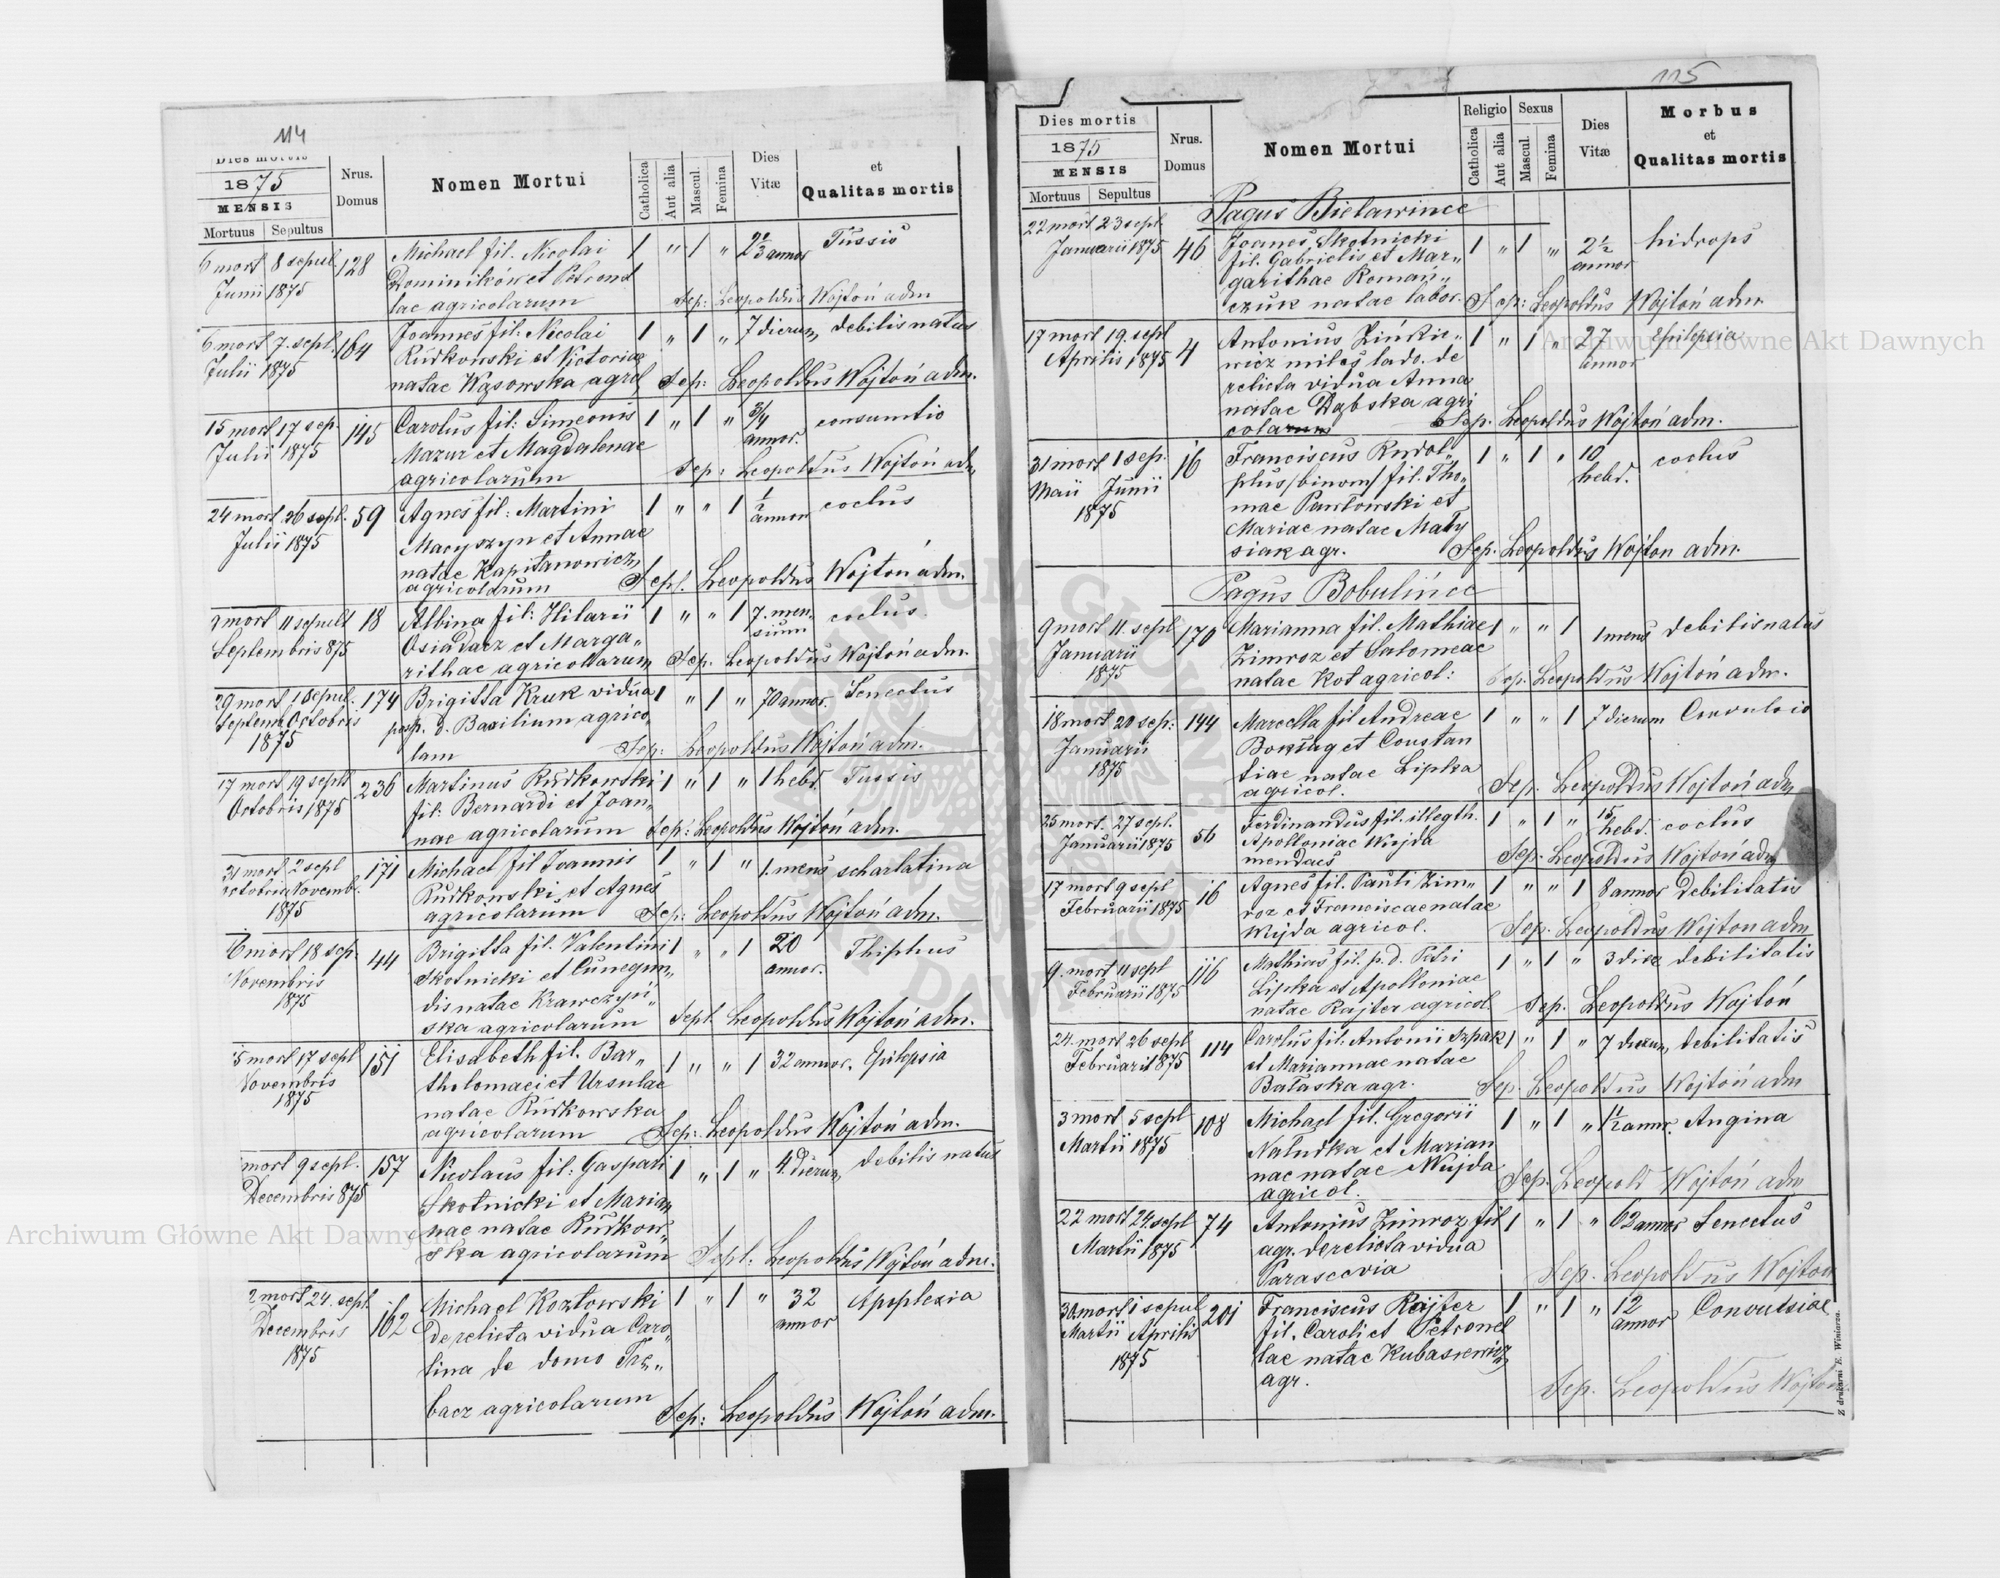 114
Dies mortis
1875
MENSIS
Mortuus Sepultus
Nrus.
Domus
Nomen Mortui
Catholica
Aut alia
Mascul.
Femina
Dies
Vitæ
et
Qualitas mortis
6 mort 8 sepul 128 Michael fil. Nicolai 1 " 1 " annor Tussis
Junii 1875 Dominikón et Petronel
lae agricolarum Sep: Leopoldus Wojtoń adm
6 mort 7. sepl. 164 Joannes fil: Nicolai 1 " 1 " 7 dierum debilis natus
Julii 1875 Rudkowski et Victoriae
natae Kąsowska agrol Sep: Leopoldus Wojtoń adm.
15 mort 17 sep. 145 Carolus fil: Simeonis 1 " 1 " 3/4 annor. consumtio
Julii 1875 Mazur et Magdalenae
agricolarum Sep: Leopoldus Wojtoń adm
24 mort 26 sepl. 59 Agnes fil: Martini 1 " " 1 1/2 annor coclus
Julii 1875 Macyszyn et Annae
natae Kapitanowicz
agricolarum Sepl. Leopoldus Wojtoń adm.
mort 11 sepult 18 Albina fil: Hilarii 1 " " 1 7. men- coclus.
Septembris 875 Osiadacz et Marga= sium
rithae agricolarum Sep. Leopoldus Wojtoń adm.
29 mort 1 Sepul. 174 Brigitta Kruk vidua 1 " 1 " 70 annor. Senectus
Septem Octobris post p. d. Basilium agrico
1875 lam Sep: Leopoldus Wojtoń adm.
17 mort 19 seplt 236 Martinus Rudkowski 1 " 1 " 1 hebd. Tussis
Octobris 1875 fil: Bernardi et Joan=
nae agricolarum Sep: Leopoldus Wojtoń adm.
31 mort 2 sepl 171 Michael fil Joannis 1 " 1 " 1. mens scharlatina
octobris Novemb. Rudkowski et Agnes
1875 agricolarum Sep: Leopoldus Wojtoń adm.
6 mort 18 sep. 44 Brigitta fil. Valentini 1 " " 1 20 Thiphus
Novembris Skotnicki et Cunegun= annor.
1875 dis natae Krawczyń=
ska agricolarum Sepl. Leopoldus Wojtoń adm.
5 mort 17 sepl 151 Elisabeth fil. Bar= 1 " " 1 32 annor. Epilepsia
Novembris tholomaei et Ursulae
1875 natae Rudkowska
agricolarum Sep: Leopoldus Wojtoń adm.
mort 9 sepl. 157 Nicolaus fil: Gaspari 1 " 1 " 4. dierum debilis natus
Decembris 875 Skotnicki et Marian
nae natae Rudkow=
ska agricolarum Sepl: Leopoldus Wojtoń adm.
2 mort 24. sepl. 162 Michael Kozłowski 1 " 1 " 32 Apoplexia
Decembris derelicta vidua Caro= annor
1875 lina de domo Trę=
bacz agricolarum Sep: Leopoldus Wojtoń adm.
115
Dies mortis
1875
MENSIS
Mortuus Sepultus
Nrus.
Domus
Nomen Mortui
Religio
Catholica
Aut alia
Sexus
Mascul.
Femina
Dies
Vitæ
Morbus
et
Qualitas mortis
Pagus Bielawince
22 mort 23 sepl. 46 Joannes Skotnicki 1 " 1 " 2 1/2 hidrops
Januarii 1875 fil. Gabrielis et Mar= annor
garithae Romań=
czuk natae labor. Sep: Leopoldus Wojtoń adm.
17 mort 19. sepl 4 Antonius Zińkie= 1 " 1 " 27 Epilepsia
Aprilis 1875 wicz miles lado. de annor
relicta vidua Anna
natae Dąbska agri
colarum Sep. Leopoldus Wojtoń adm.
31 mort 1 sep. 16 Franciscus Rudol= 1 " 1 " 10 coclus
Maii Junii phus /binom/ fil. Tho= hebd.
1875 mae Pawłowski et
Mariae natae Maty
siak agr. Sep. Leopoldus Wojtoń adm.
Pagus Bobulińce
9 mort 11. sepl 170 Marianna fil. Mathiae 1 " " 1 1 mens debilis natus
Januarii Zimroz et Salomeae
1875 natae Kot agricol: Sep. Leopoldus Wojtoń adm.
18 mort 20 sep: 144 Marcella fil Andreae 1 " " 1 7 dierum Convulsio
Januarii et Constan
1875 tiae natae Lipka
agricol. Sep. Leopoldus Wojtoń adm
25 mort. 27 sepl. 56 Ferdinandus fil. illegth. 1 " 1 " 15 coclus
Januarii 1875 Apolloniae Wujda hebd.
mendacs Sep. Leopoldus Wojtoń adm
17 mort 9 sepl 16 Agnes fil. Pauli Zim= 1 " " 1 8 annor Debilitatis
Februarii 1875 roz et Franciscae natae
Wujda agricol. Sep. Leopoldus Wojton adm
9. mort 11 sepl 116 Mathias fil. p. d. Petri 1 " 1 " 3 dies debilitatis
Februarii 1875 Lipka et Apolloniae
natae Rajter agricol. Sep. Leopoldus Wojtoń
24. mort 26 sepl 114 Carolus fil. Antonii Szpak 1 " 1 " 7 dierum debilitatis
Februarii 1875 et Mariannae natae
Bałaska agr. Sep. Leopoldus Wojtoń adm
3 mort 5 sepl 108 Michael fil. Gregorii 1 " 1 " 1 1/2 annor. Angina
Martii 1875 Naludka et Marian
nae natae Wujda
agricol. Sep. Leopold Wojtoń adm
22 mort 24 sepl 74 Antonius Zimroz fil 1 " 1 " 62 annor Senectus
Martii 1875 agr. derelicta vidua
Parascevia Sep. Leopoldus Wojton
30 mort 1 sepul 201 Franciscus Rajter 1 " 1 " 12 Convulsiae
Martii Aprilis fil. Caroli et Petronel annor
1875 lae natae Kubasiewicz
agr. Sep. Leopoldus Wojton
Z drukarni E. Winiarza.
Archiwum Główne Akt Dawnych
Archiwum Główne Akt Dawnych
ARCHIWUM GŁÓWNE AKT DAWNYCH